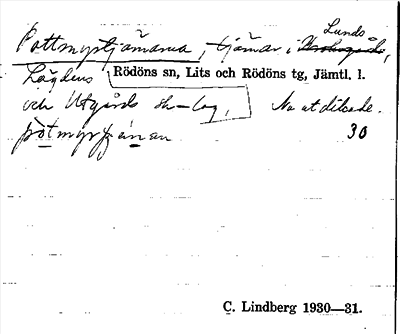 Pottmyrtjärnarna, tjärnar i Lunds,
Lägdens Rödöns sn, Lits och Rödöns tg, Jämtl. l.
och Utgårds sk-lag, No ut dítoode.
pòtmyrtjànan 30
C. Lindberg 1930—31.